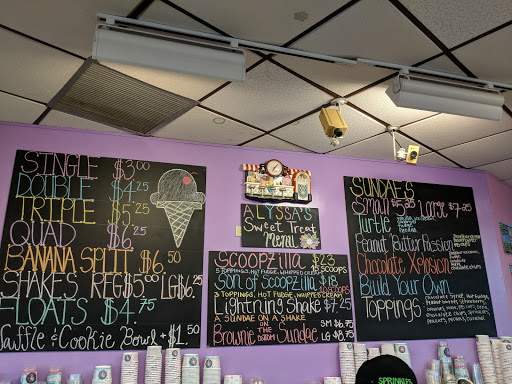 SINGLE $3.00
DOUBLE $4.25
TRIPLE $5.25
QUAD $6.25
BANANA SPLIT $6.50
SHAKES REG $5.00 LG $6.25
FLOATS $4.75
Waffle & Cookie Bowl + $1.50
ALYSSA'S
Sweet Treat
Menu
SCOOPZILLA $23
5 TOPPINGS, HOT FUDGE, WHIPPED CREAM
Son of Scoopzilla $18
3 TOPPINGS, HOT FUDGE, WHIPPED CREAM
Lightning Shake $7.25
A SUNDAE ON A SHAKE
Brownie ON THE BOTTOM Sundae
SM $6.75
LG $8.75
SUNDAES
Small $5.25 Large $7.25
Turtle
Peanut Butter Passion
Chocolate Xplosion
Build Your Own
Toppings
SPRINKLES